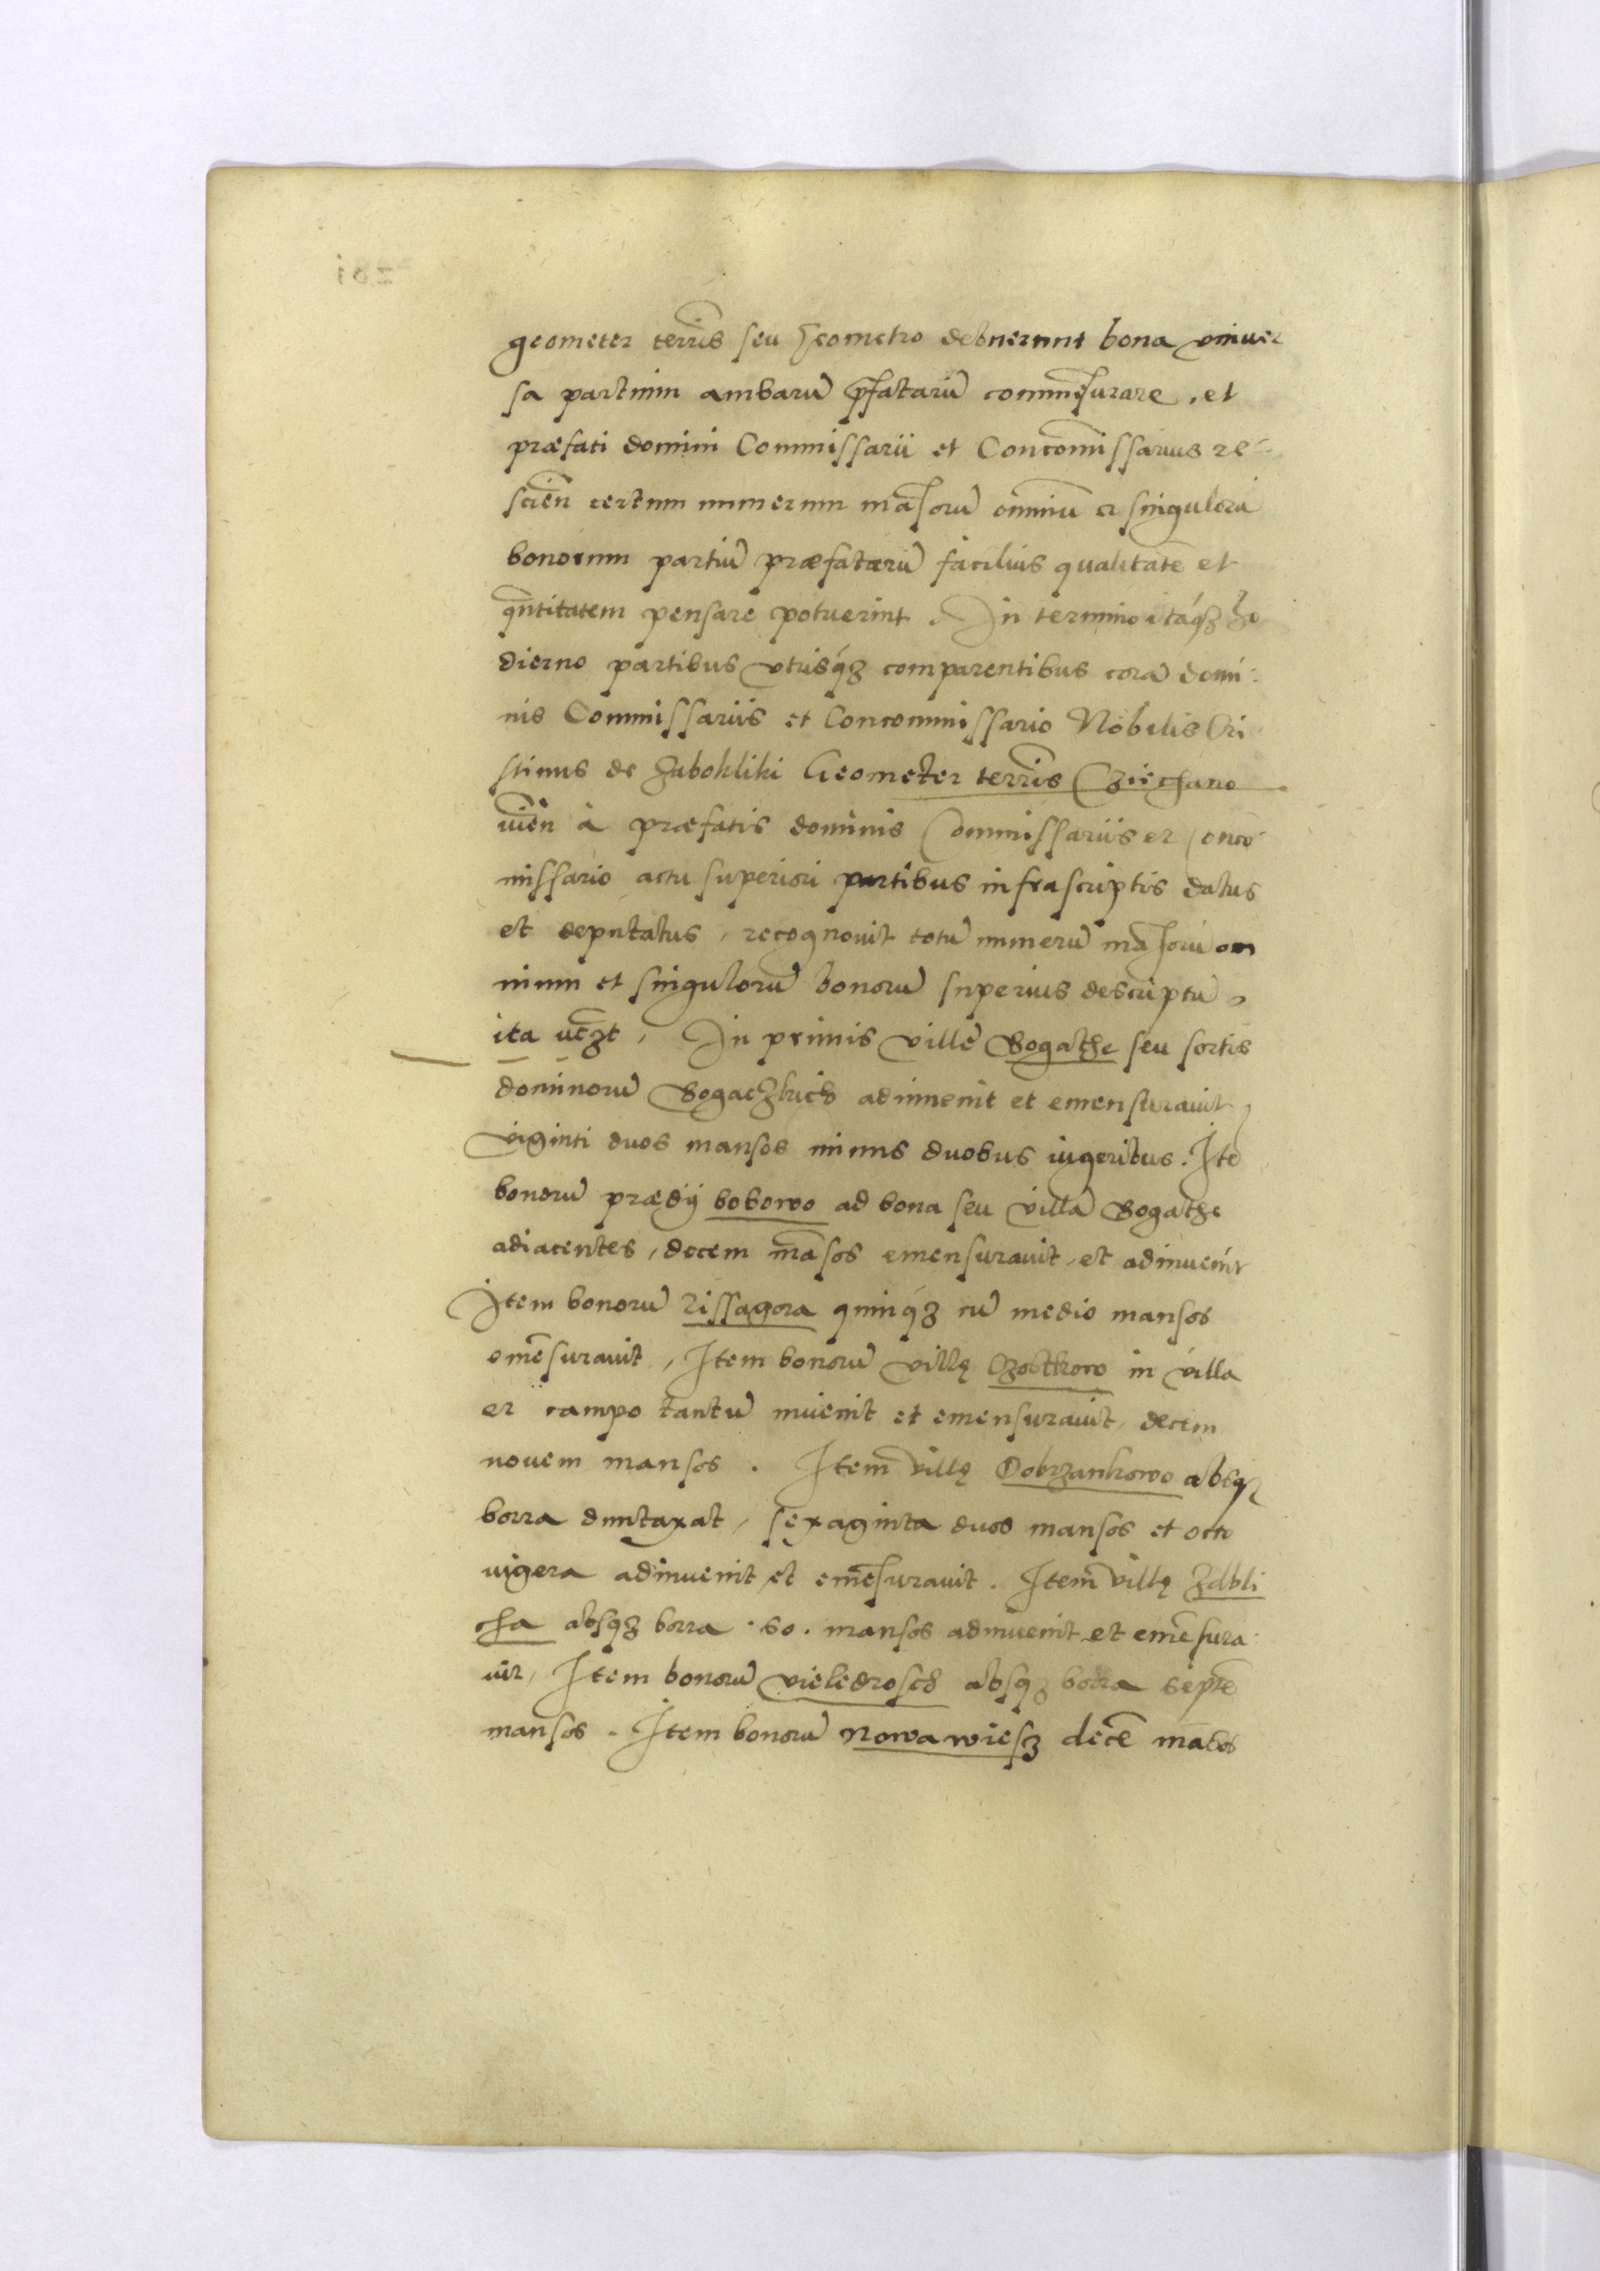 geometer terrīs seu Geometro debuerunt bona vniuer
sa partium ambarū p̄fatarū comm̄surare, et
præfati domini Commissarii et Concōmissarius re-
scien̄ certum numerum māsorū omniū et singulorū
bonorum partiū præfatarū facilius qualitatē et
q̄ntitatem pensare potuerint. In termino itáqȝ ho
dierno partibus vtrisq́ȝ comparentibus corā domi-
nis Commissariis et Concommissario Nobilis Cri-
stinus de Zabokliki Geometer terrīs Cziechano
uien̄ à præfatis dominis Commissariis et Concō-
missario actu superiori partibus infrascriptis datus
et deputatus, recognouit totū numerū māsorū om
nium et singulorū bonorū superius descriptū,
ita vc̄ȝt, In primis villē Bogathe seu sortis
dominorū Bogaczkich adinuenit et emensurauit,
viginti duos mansos minus duobus iugeribus. Itē
bonorū prædij bobowo ad bona seu villā Bogathe
adiacentes, decem māsos emensurauit, et adinuenit
Item bonorū Lissagora quinq́ȝ cū medio mansos
emēsurauit, Item bonorū villę Czosthkowo in villa
et campo tantū inuenit et emensurauit, decem
nouem mansos. Item villę Dobrzankowo absqȝ
borra duntaxat, sexaginta duos mansos et octo
iugera adinuenit et emēsurauit. Item villę Zdbli
cha absqȝ borra .50. mansos adinuenit et emēsura-
uit, Item bonorū vieledrosch absqȝ borra septē
mansos. Item bonorū nowawiesz decē māsos